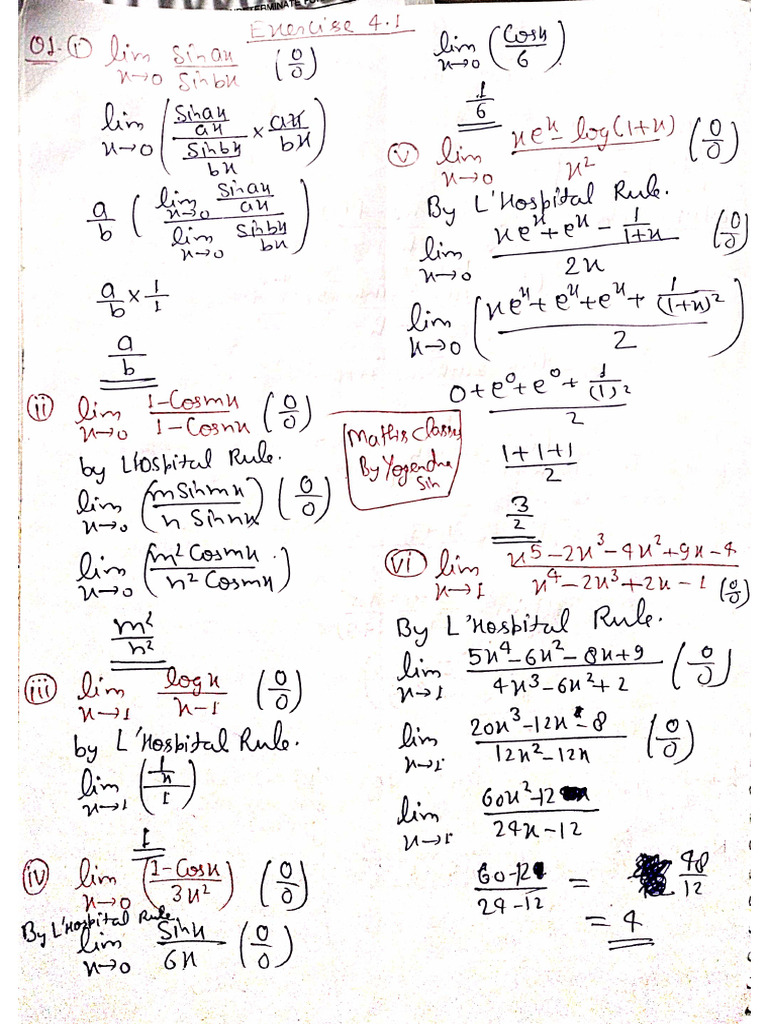 Exercise 4.1
Q1. (i) lim x→0 Sin ax / Sin bx (0/0)
lim x→0 ( (Sin ax / ax) / (Sin bx / bx) × ax / bx )
a/b ( lim x→0 Sin ax / ax / lim x→0 Sin bx / bx )
a/b × 1/1
a/b
(ii) lim x→0 1-Cosmx / 1-Cosnx (0/0)
by L'Hospital Rule.
lim x→0 ( m Sin mx / n Sin nx ) (0/0)
lim x→0 ( m² Cosmx / n² Cosmx )
m²/n²
(iii) lim x→1 log x / x-1 (0/0)
by L'Hospital Rule.
lim x→1 ( (1/x) / 1 )
1
(iv) lim x→0 ( 1-Cosx / 3x² ) (0/0)
By L'Hospital Rule
lim x→0 Sinx / 6x (0/0)
lim x→0 ( Cosx / 6 )
1/6
(v) lim x→0 xeˣ - log(1+x) / x² (0/0)
By L'Hospital Rule.
lim x→0 xeˣ + eˣ - 1/(1+x) / 2x (0/0)
lim x→0 ( xeˣ + eˣ + eˣ + 1/(1+x)² / 2 )
0 + e⁰ + e⁰ + 1/(1)² / 2
1+1+1 / 2
3/2
Maths Classes
By Yogendra
Sir
(vi) lim x→1 x⁵ - 2x³ - 4x² + 9x - 4 / x⁴ - 2x³ + 2x - 1 (0/0)
By L'Hospital Rule.
lim x→1 5x⁴ - 6x² - 8x + 9 / 4x³ - 6x² + 2 (0/0)
lim x→1 20x³ - 12x - 8 / 12x² - 12x (0/0)
lim x→1 60x² - 12 / 24x - 12
60-12 / 24-12 = 48/12
= 4